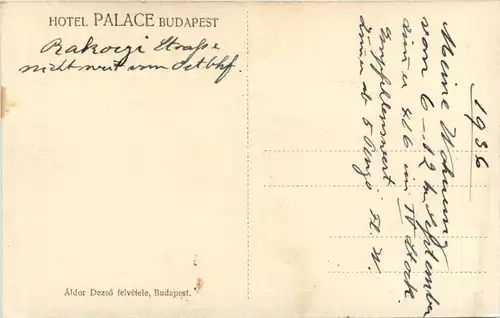 HOTEL PALACE BUDAPEST
Rakoczi Straße
nicht weit vom Ostbhf.
Áldor Dezső felvétele, Budapest.
1936
Meine Wohnung
vom 6–12 ten September
Zimmer 426 im IV Stock.
Empfehlenswert
Zimmer ab 5 Pengö H. W.